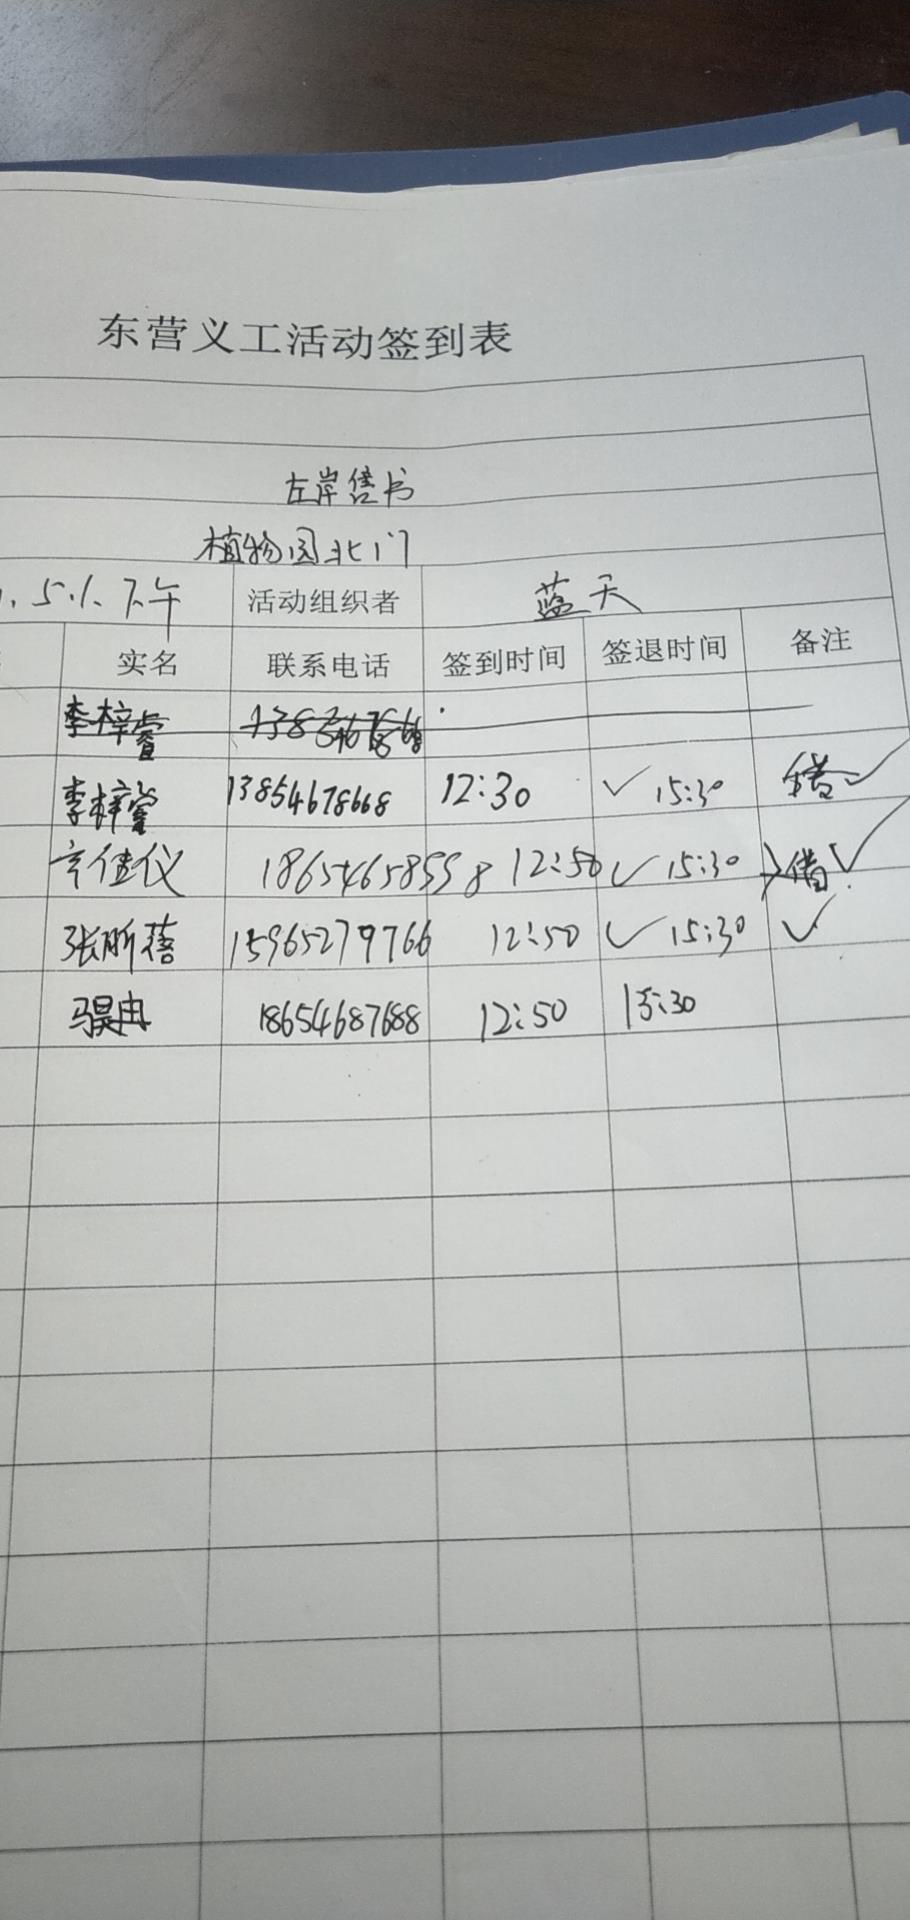 东营义工活动签到表
左岸售书
植物园北门
.5.1.下午 活动组织者 蓝天
实名 联系电话 签到时间 签退时间 备注
李梓睿
李梓萱 13854678668 12:30 ✓ 15:30 借✓
佳仪 18654658558 12:50 ✓ 15:30 借✓
张昕蓓 15965279766 12:50 ✓ 15:30 ✓
18654687688 12:50 15:30